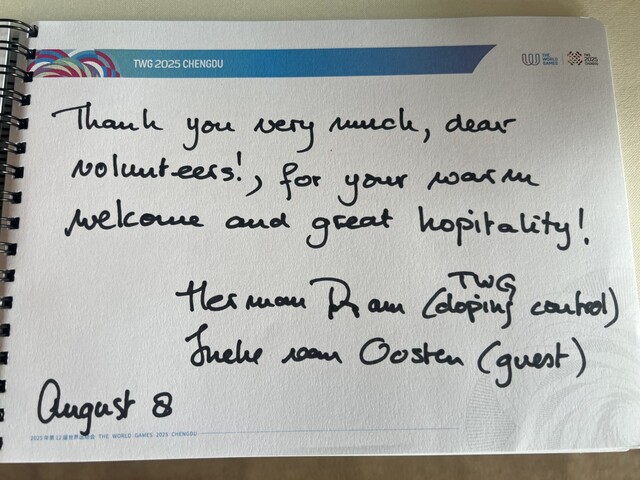 TWG 2025 CHENGDU
THE WORLD GAMES
THE 2025 CHENGDU
Thank you very much, dear
volunteers!, for your warm
welcome and great hopitality!
TWG
Herman Ram (doping control)
Ineke van Oosten (guest)
August 8
2025年第12届世界运动会 THE WORLD GAMES 2025 CHENGDU